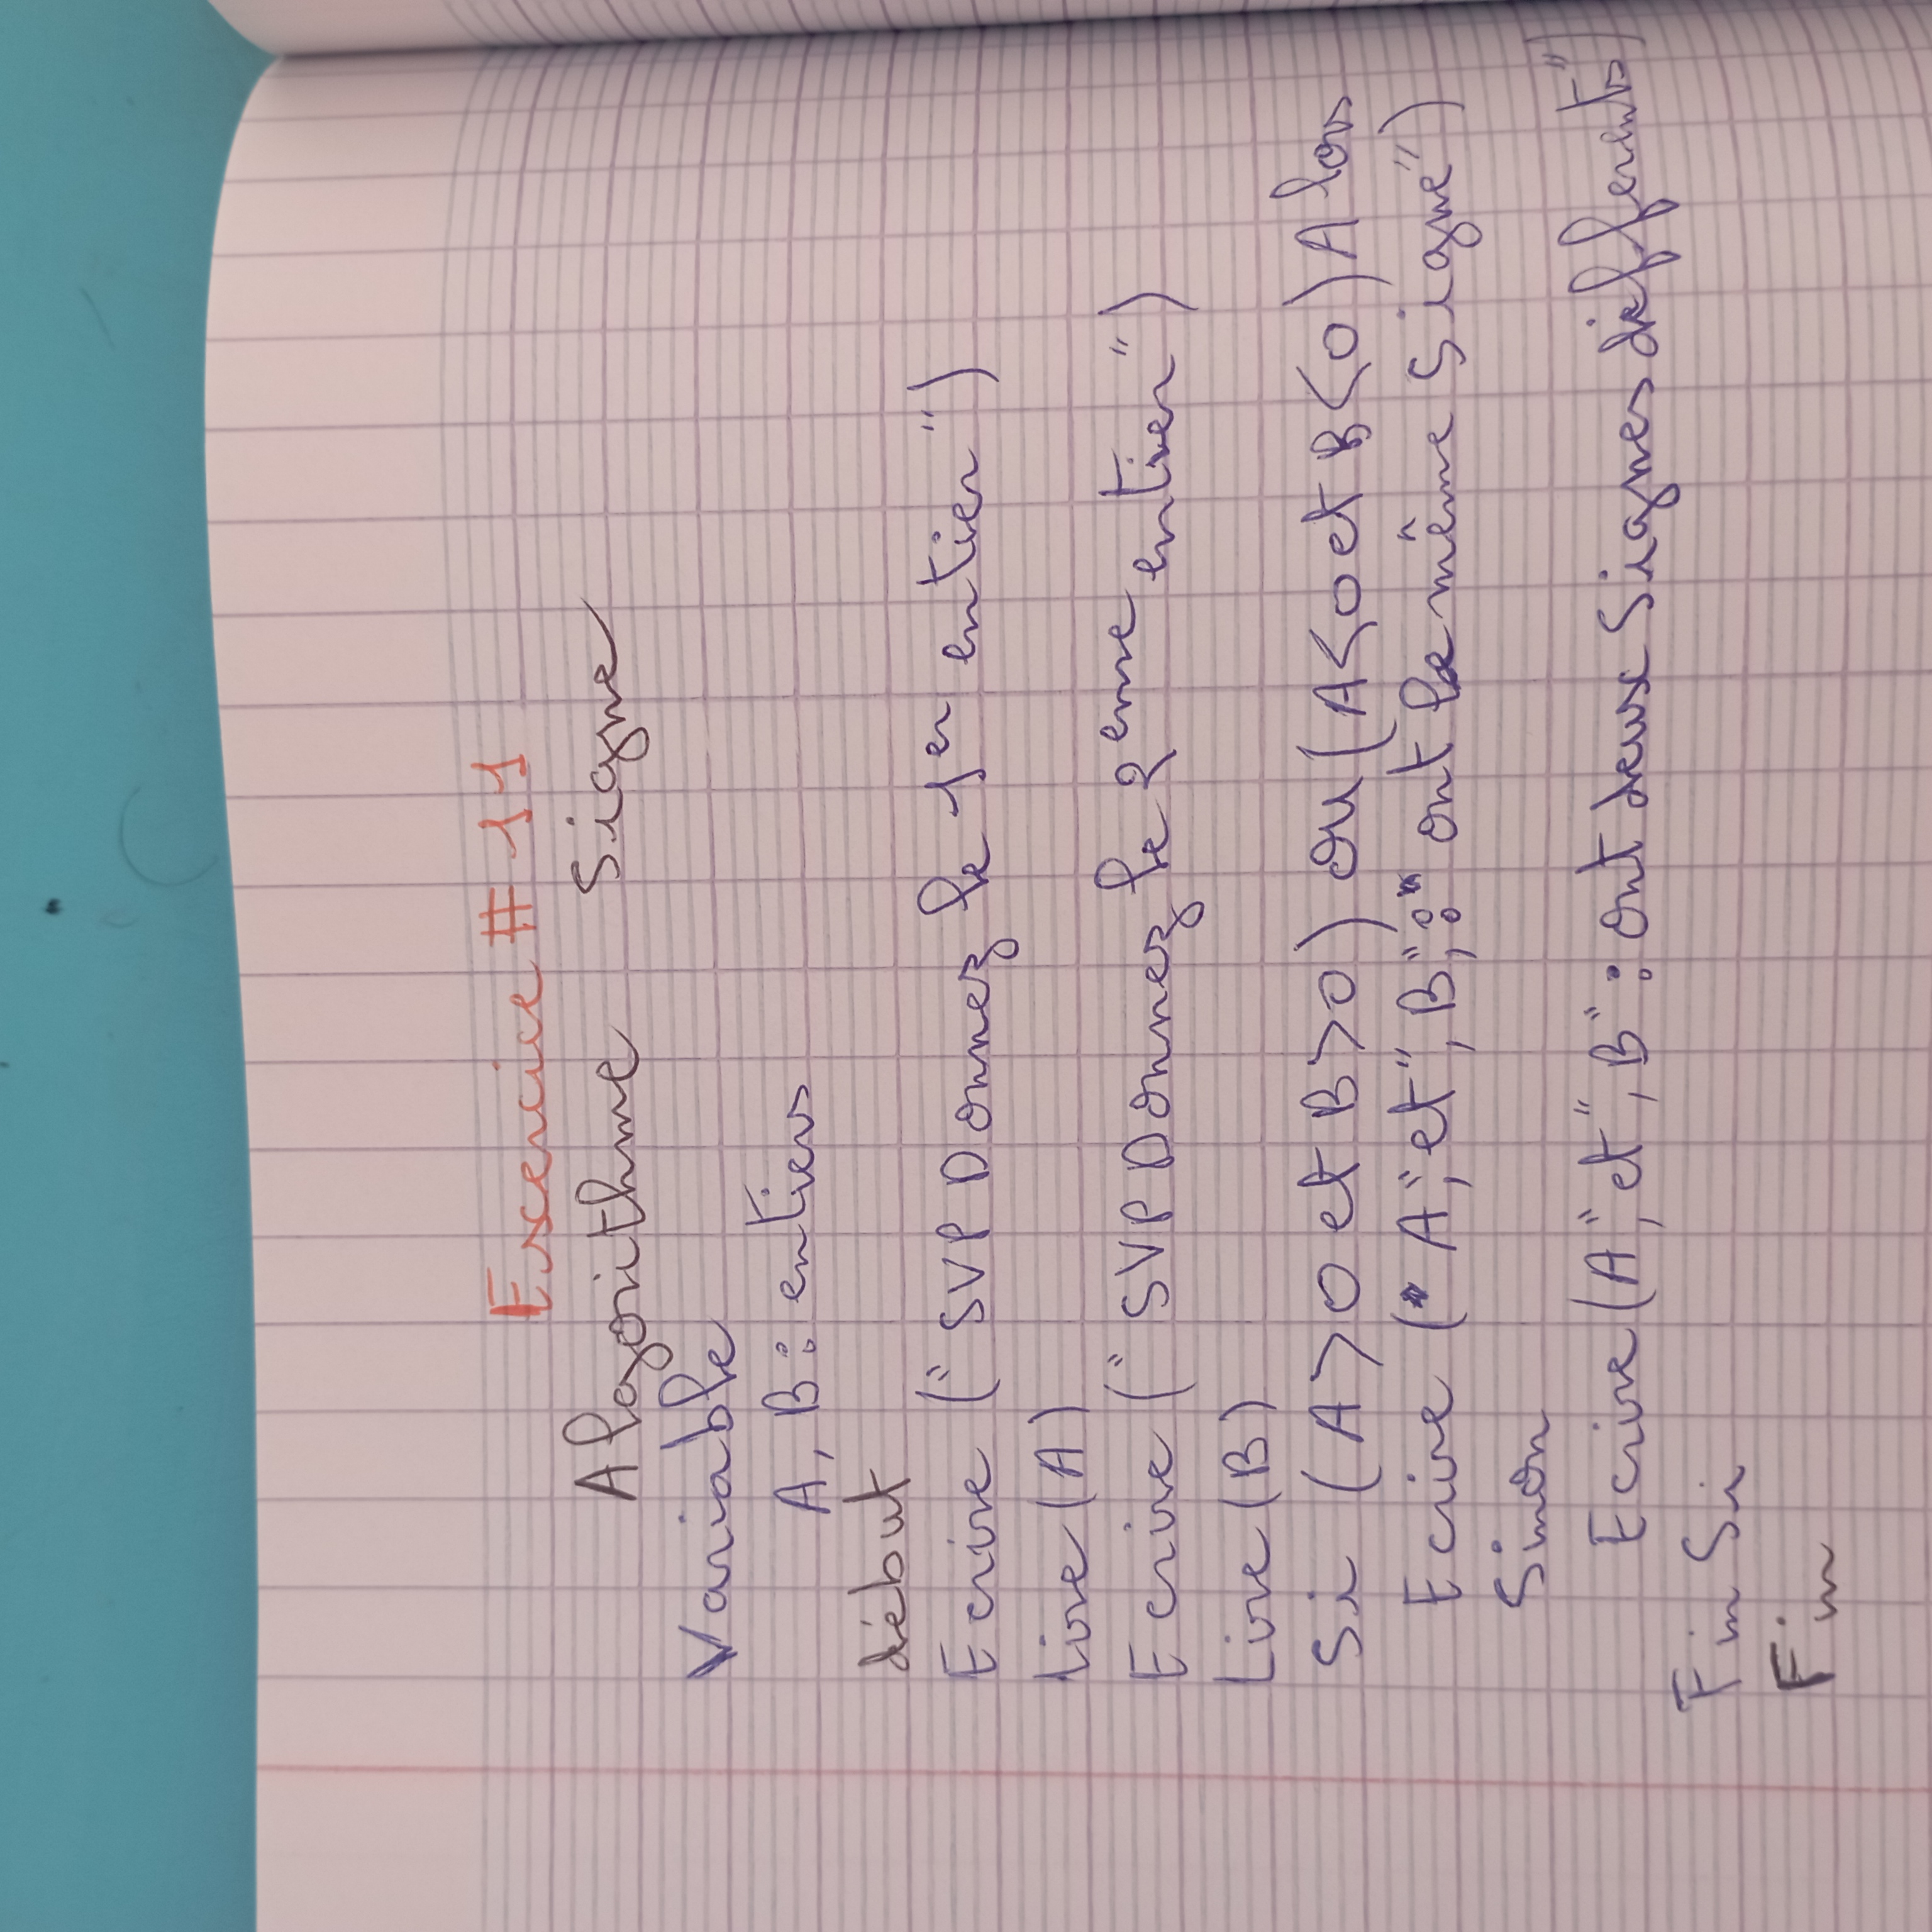 Exercice # 11
Algorithme Signe
Variable
A, B : entiers
début
Ecrire (" SVP Donnez le 1er entier ")
Lire (A)
Ecrire (" SVP Donnez le 2eme entier ")
Lire (B)
Si (A > 0 et B > 0) ou (A < 0 et B < 0) Alors
Ecrire (" A," et ", B," : " ont le même Signe")
Sinon
Ecrire (A," et ", B " : ont deux Signes différents")
Fin Si
Fin